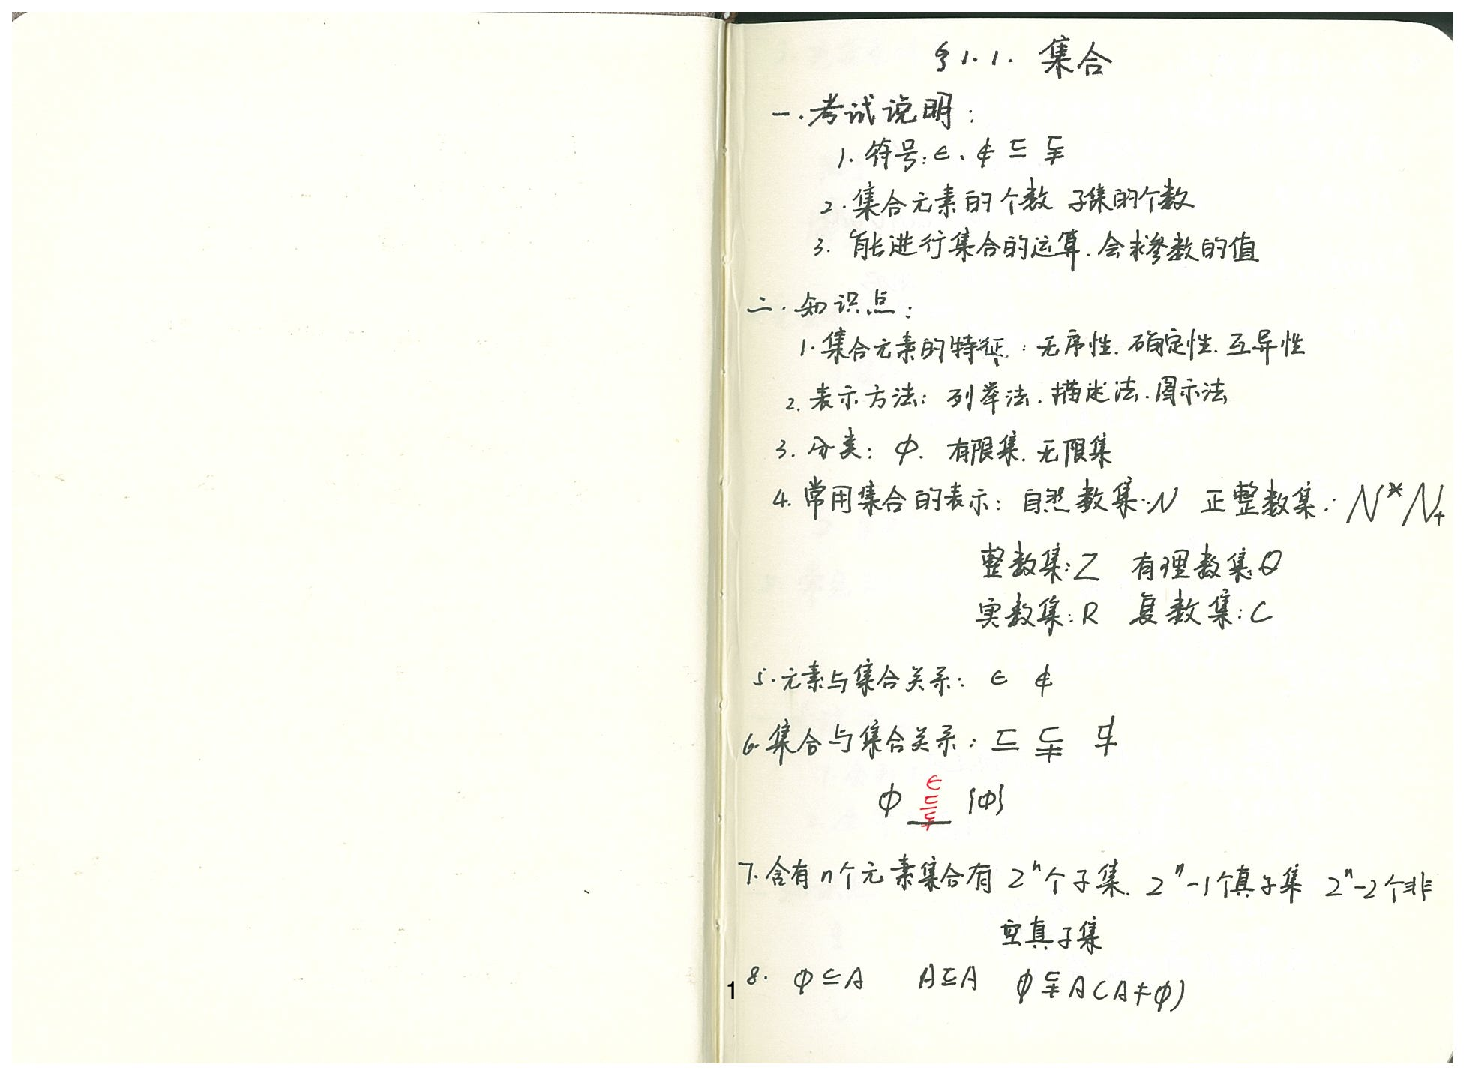 §1.1. 集合
一.考试说明:
1. 符号:∈、∉ ⊆ ⫋
2.集合元素的个数 子集的个数
3. 能进行集合的运算.会求参数的值
二.知识点:
1.集合元素的特征:无序性.确定性.互异性
2.表示方法:列举法.描述法.图示法
3.分类:φ. 有限集.无限集
4.常用集合的表示:自然数集:N 正整数集:N*N₊
整数集:Z 有理数集:Q
实数集:R 复数集:C
5.元素与集合关系:∈ ∉
6.集合与集合关系:⊆ ⫋ ⊈
φ ∈ ⊆ ⫋ {φ}
7.含有n个元素集合有2ⁿ个子集.2ⁿ-1个真子集 2ⁿ-2个非
空真子集
8. φ⊆A A⊆A φ⫋A(A≠φ)
1